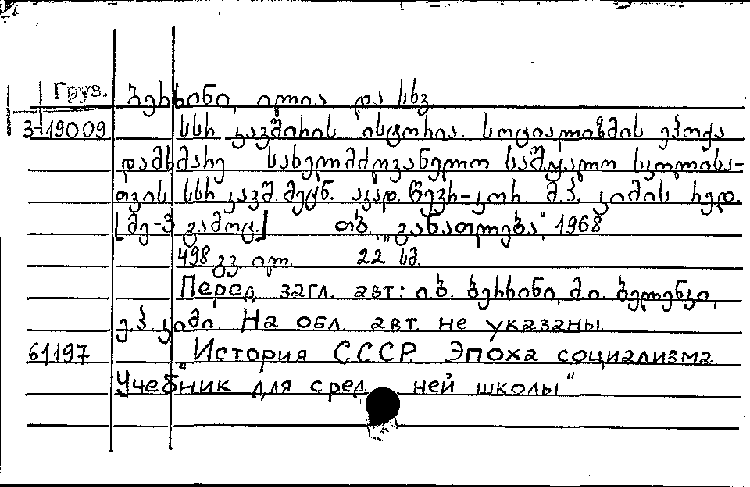 Груз. ბერხინი, ილია და სხვ.
3-19009 სსრ კავშირის ისტორია. სოციალიზმის ეპოქა
დამხმარე სახელმძღვანელო საშუალო სკოლისა-
თვის სსრ კავშ. მეცნ. აკად. წევრ-კორ. მ.პ. კიმის რედ.
[მე-3 გამოც.] თბ. „განათლება“, 1968
498 გვ. ილ. 22 სმ.
Перед загл. авт: ი.ბ. ბერხინი, მ.ი. ბელენკი,
მ.პ. კიმი. На обл. авт. не указаны
61197 "История СССР. Эпоха социализма
Учебник для средней школы"